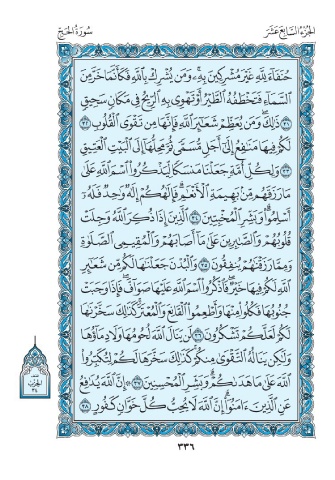 الجزء السابع عشر
سورة الحج
حُنَفَآءَ لِلَّهِ غَيْرَ مُشْرِكِينَ بِهِۦۚ وَمَن يُشْرِكْ بِٱللَّهِ فَكَأَنَّمَا خَرَّ مِنَ
ٱلسَّمَآءِ فَتَخْطَفُهُ ٱلطَّيْرُ أَوْ تَهْوِى بِهِ ٱلرِّيحُ فِى مَكَانٍ سَحِيقٍ
٣١ ذَٰلِكَۖ وَمَن يُعَظِّمْ شَعَٰٓئِرَ ٱللَّهِ فَإِنَّهَا مِن تَقْوَى ٱلْقُلُوبِ ٣٢
لَكُمْ فِيهَا مَنَٰفِعُ إِلَىٰٓ أَجَلٍ مُّسَمًّى ثُمَّ مَحِلُّهَآ إِلَى ٱلْبَيْتِ ٱلْعَتِيقِ
٣٣ وَلِكُلِّ أُمَّةٍ جَعَلْنَا مَنسَكًا لِّيَذْكُرُوا۟ ٱسْمَ ٱللَّهِ عَلَىٰ
مَا رَزَقَهُم مِّنۢ بَهِيمَةِ ٱلْأَنْعَٰمِۗ فَإِلَٰهُكُمْ إِلَٰهٌ وَٰحِدٌ فَلَهُۥٓ
أَسْلِمُوا۟ۗ وَبَشِّرِ ٱلْمُخْبِتِينَ ٣٤ ٱلَّذِينَ إِذَا ذُكِرَ ٱللَّهُ وَجِلَتْ
قُلُوبُهُمْ وَٱلصَّٰبِرِينَ عَلَىٰ مَآ أَصَابَهُمْ وَٱلْمُقِيمِى ٱلصَّلَوٰةِ
وَمِمَّا رَزَقْنَٰهُمْ يُنفِقُونَ ٣٥ وَٱلْبُدْنَ جَعَلْنَٰهَا لَكُم مِّن شَعَٰٓئِرِ
ٱللَّهِ لَكُمْ فِيهَا خَيْرٌۖ فَٱذْكُرُوا۟ ٱسْمَ ٱللَّهِ عَلَيْهَا صَوَآفَّۖ فَإِذَا وَجَبَتْ
جُنُوبُهَا فَكُلُوا۟ مِنْهَا وَأَطْعِمُوا۟ ٱلْقَانِعَ وَٱلْمُعْتَرَّۚ كَذَٰلِكَ سَخَّرْنَٰهَا
لَكُمْ لَعَلَّكُمْ تَشْكُرُونَ ٣٦ لَن يَنَالَ ٱللَّهَ لُحُومُهَا وَلَا دِمَآؤُهَا
وَلَٰكِن يَنَالُهُ ٱلتَّقْوَىٰ مِنكُمْۚ كَذَٰلِكَ سَخَّرَهَا لَكُمْ لِتُكَبِّرُوا۟
ٱللَّهَ عَلَىٰ مَا هَدَىٰكُمْۗ وَبَشِّرِ ٱلْمُحْسِنِينَ ٣٧ إِنَّ ٱللَّهَ يُدَٰفِعُ
عَنِ ٱلَّذِينَ ءَامَنُوٓا۟ۗ إِنَّ ٱللَّهَ لَا يُحِبُّ كُلَّ خَوَّانٍ كَفُورٍ ٣٨
نصف
الحزب
٣٤
٣٣٦